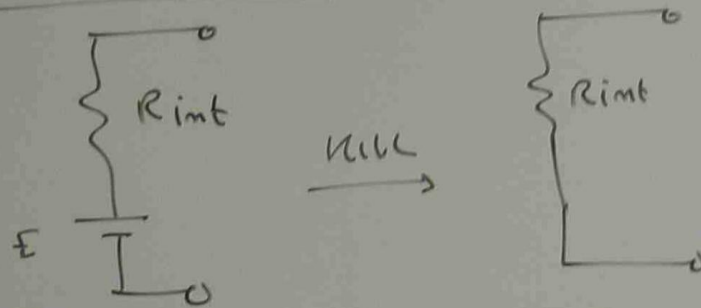 R int
Kill
E
Rint